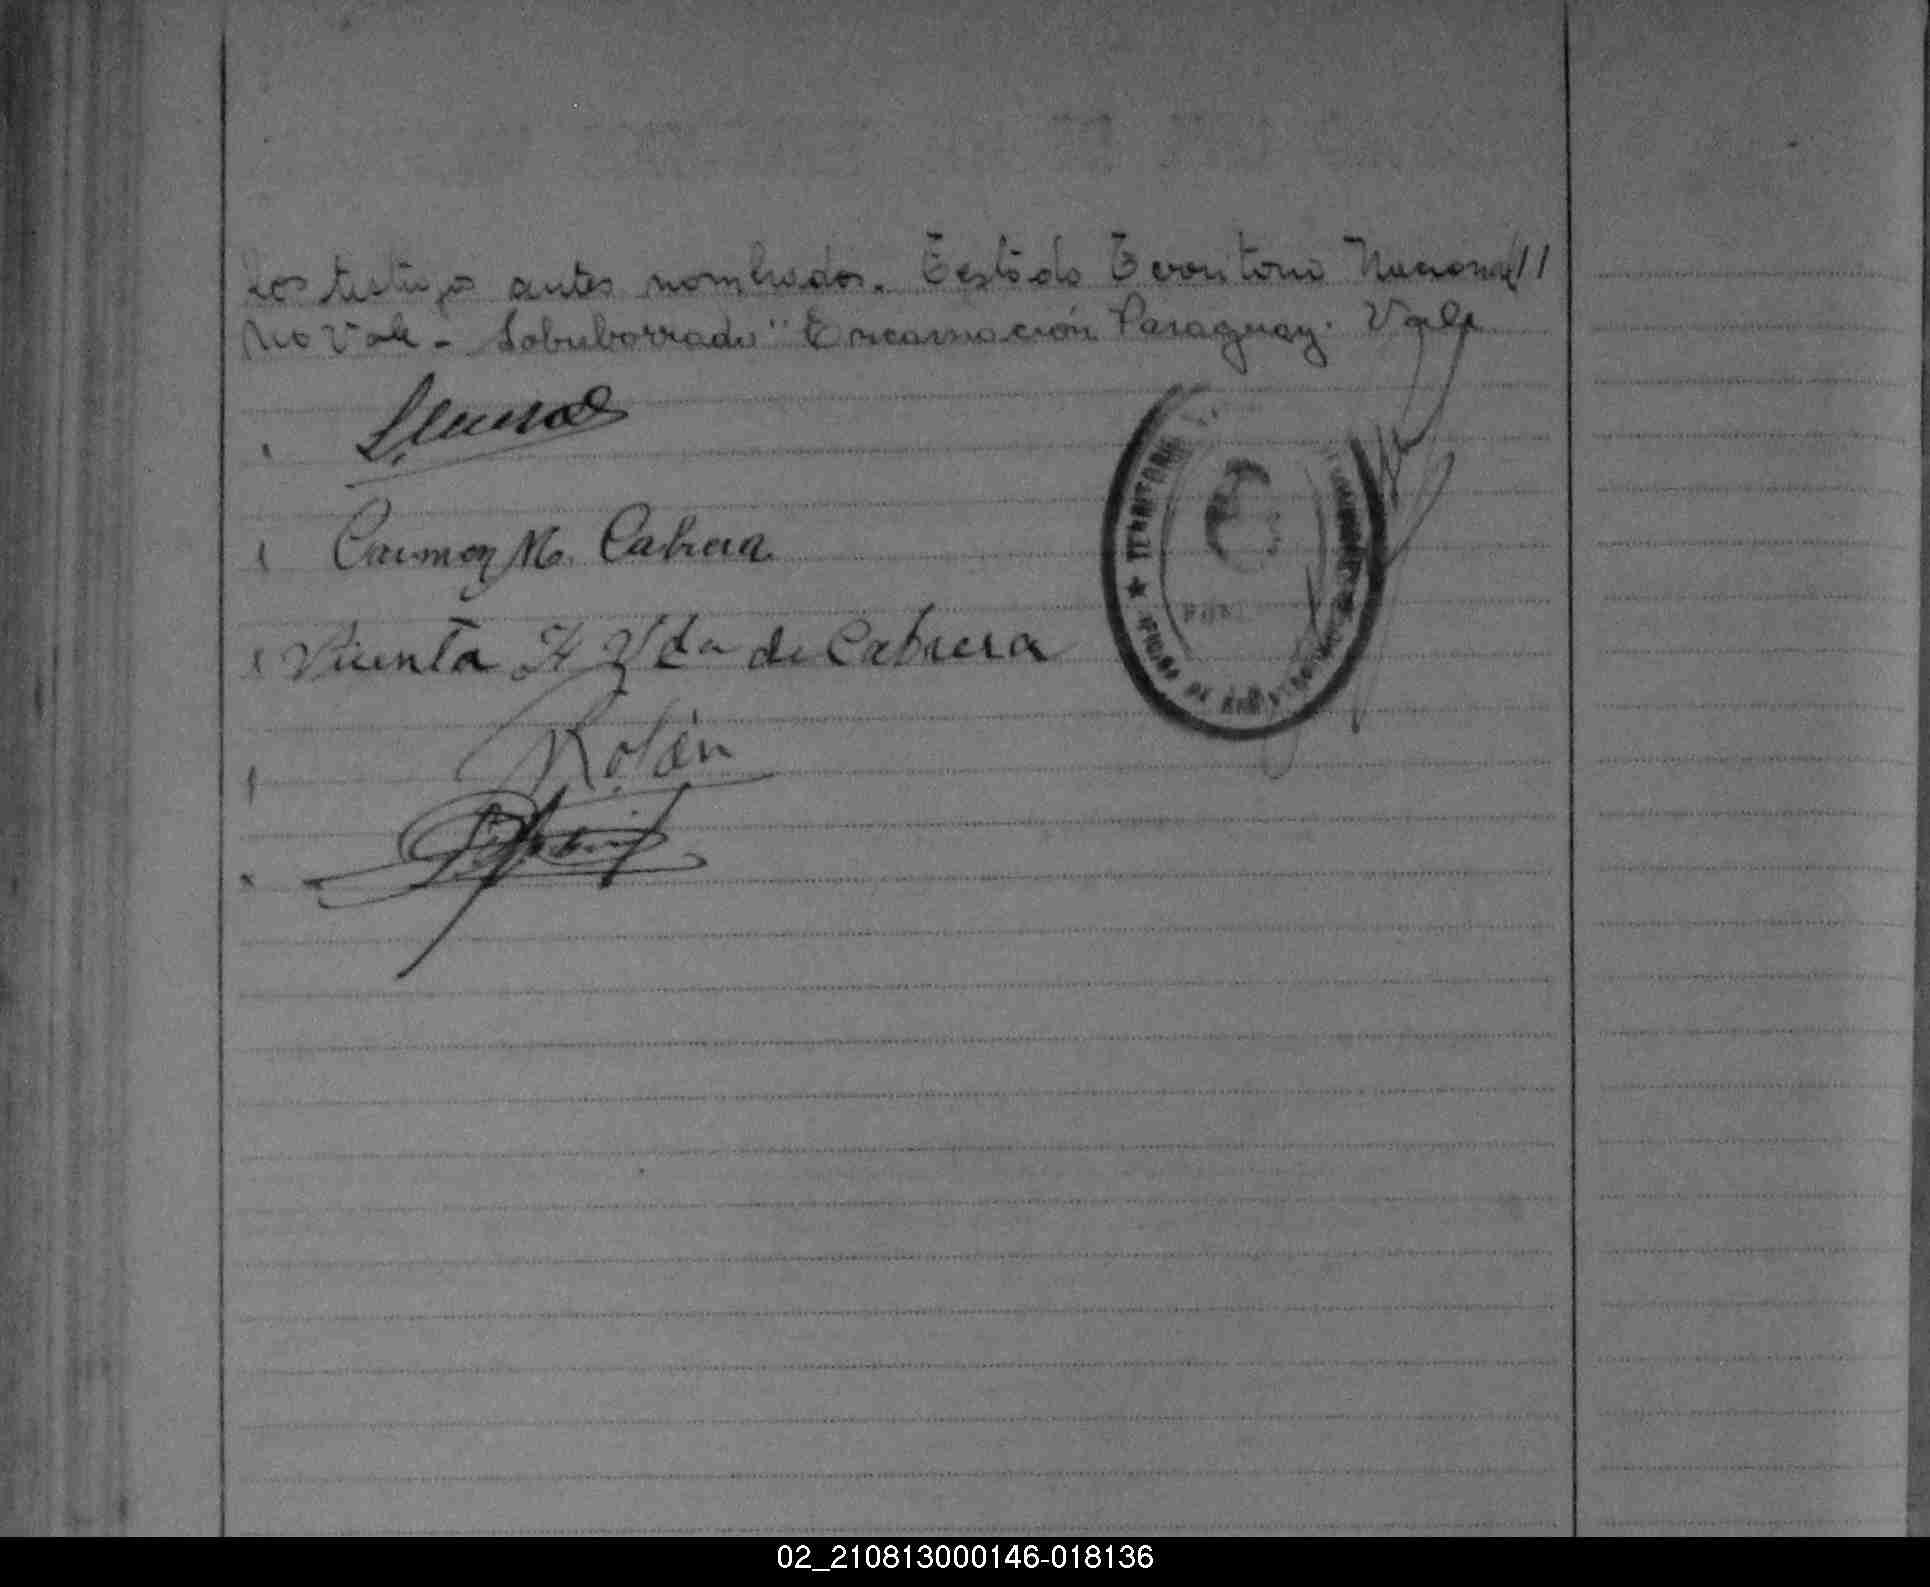 los testigos antes nombrados. Testado Territorio Nacional //
No Vale - Sobreborrado "Encarnación Paraguay. Vale
Carmen M. Cabrera
Vicenta F. Vda de Cabrera
Rolón
★ TERRITORIO
OFICINA DE
02_210813000146-018136